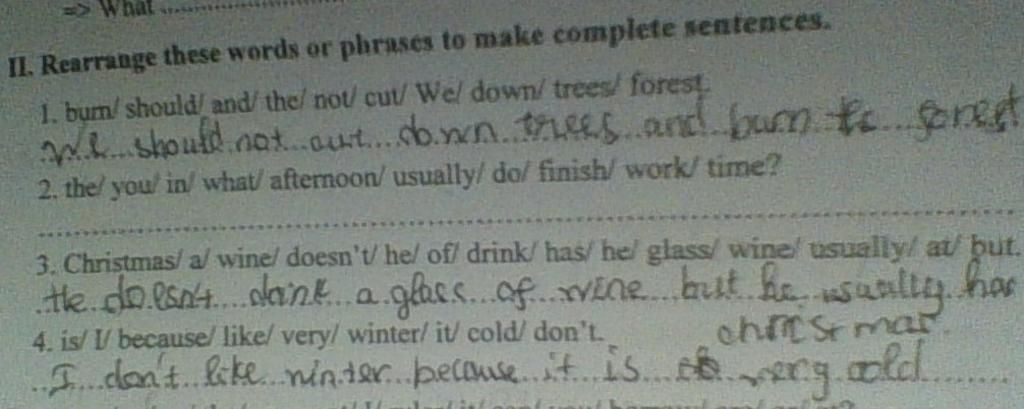 => What ..................
II. Rearrange these words or phrases to make complete sentences.
1. burn/ should/ and/ the/ not/ cut/ We/ down/ trees/ forest.
we should not cut down trees and burn the forest
2. the/ you/ in/ what/ afternoon/ usually/ do/ finish/ work/ time?
3. Christmas/ a/ wine/ doesn't/ he/ of/ drink/ has/ he/ glass/ wine/ usually/ at/ but.
He doesn't drink a glass of wine but he usually has
chrisr mas.
4. is/ I/ because/ like/ very/ winter/ it/ cold/ don't.
I don't like winter because it is very cold